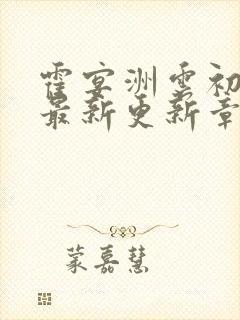 霍宴洲云初
最新更新章
蒙嘉慧